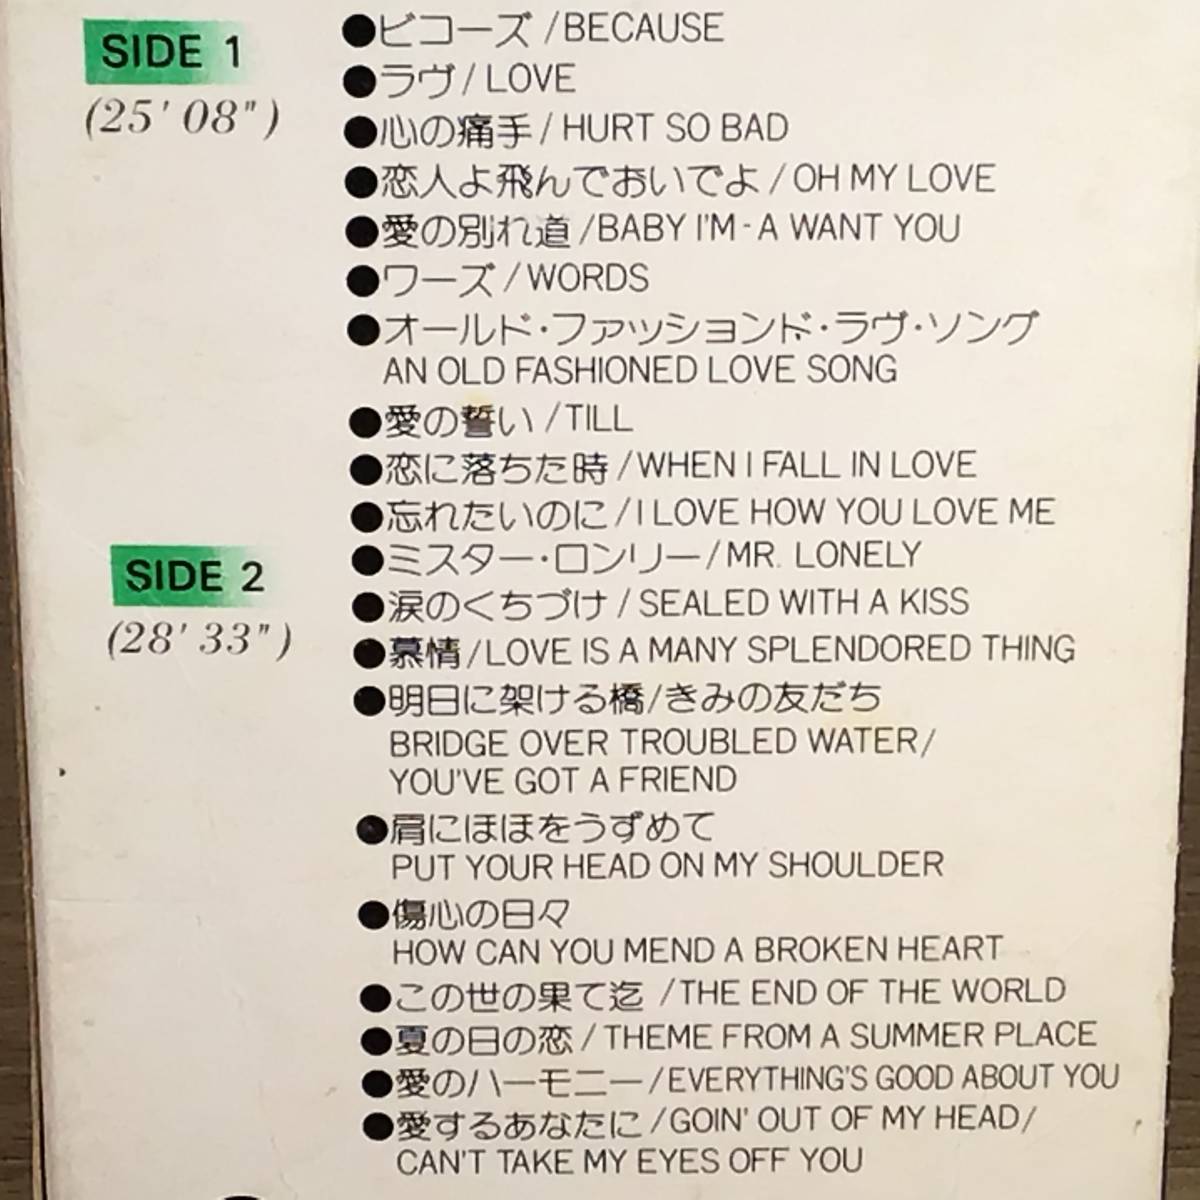 SIDE 1
(25' 08")
●ビコーズ/BECAUSE
●ラヴ/LOVE
●心の痛手/HURT SO BAD
●恋人よ飛んでおいでよ/OH MY LOVE
●愛の別れ道/BABY I'M-A WANT YOU
●ワーズ/WORDS
●オールド・ファッションド・ラヴ・ソング
AN OLD FASHIONED LOVE SONG
●愛の誓い/TILL
●恋に落ちた時/WHEN I FALL IN LOVE
●忘れたいのに/I LOVE HOW YOU LOVE ME
SIDE 2
(28' 33")
●ミスター・ロンリー/MR. LONELY
●涙のくちづけ/SEALED WITH A KISS
●慕情/LOVE IS A MANY SPLENDORED THING
●明日に架ける橋/きみの友だち
BRIDGE OVER TROUBLED WATER/
YOU'VE GOT A FRIEND
●肩にほほをうずめて
PUT YOUR HEAD ON MY SHOULDER
●傷心の日々
HOW CAN YOU MEND A BROKEN HEART
●この世の果て迄/THE END OF THE WORLD
●夏の日の恋/THEME FROM A SUMMER PLACE
●愛のハーモニー/EVERYTHING'S GOOD ABOUT YOU
●愛するあなたに/GOIN' OUT OF MY HEAD/
CAN'T TAKE MY EYES OFF YOU